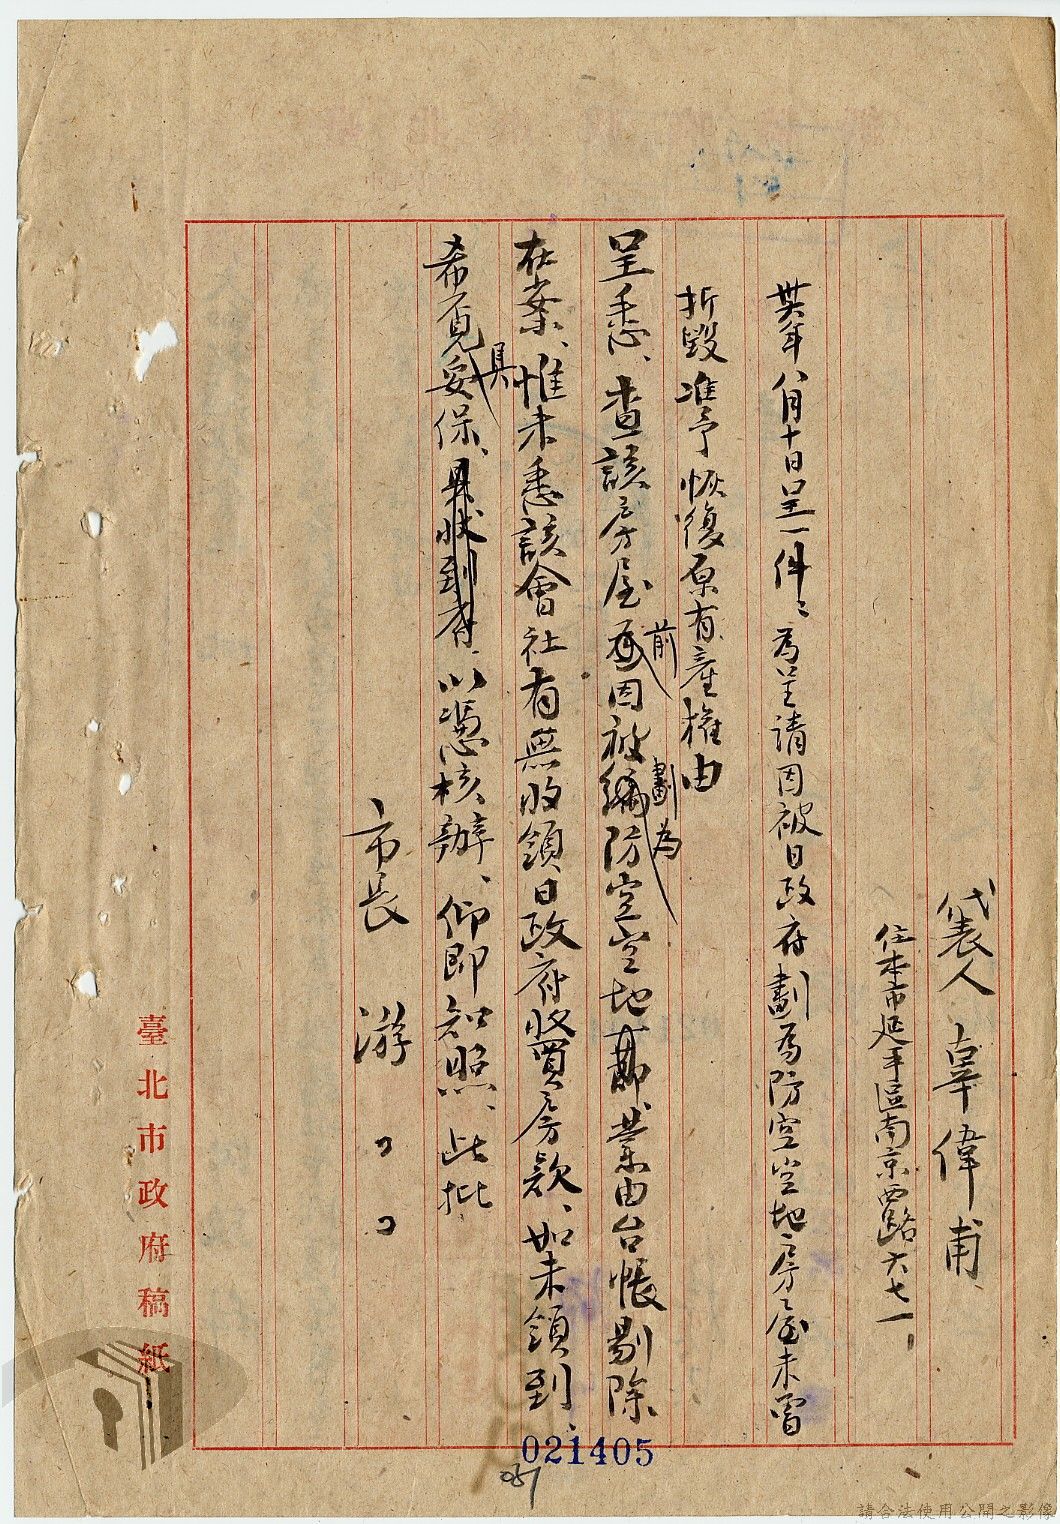 代表人 辜偉甫
住本市延平區南京西路六七一
卅六年八月十日呈一件、為呈請因被日政府劃為防空空地房屋未曾
拆毀准予恢復原有產權由
呈悉、查該房屋前因被劃為防空空地業由台帳剔除
在案、惟未悉該會社有無收領日政府收買房款、如未領到、
希覓具妥保、以憑核辦、仰即知照、此批
市長 游
臺北市政府稿紙
021405
請合法使用公開之影像